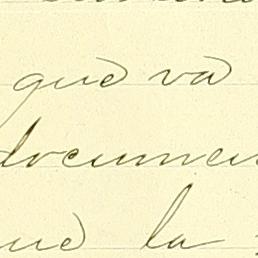 que va
documen
que la